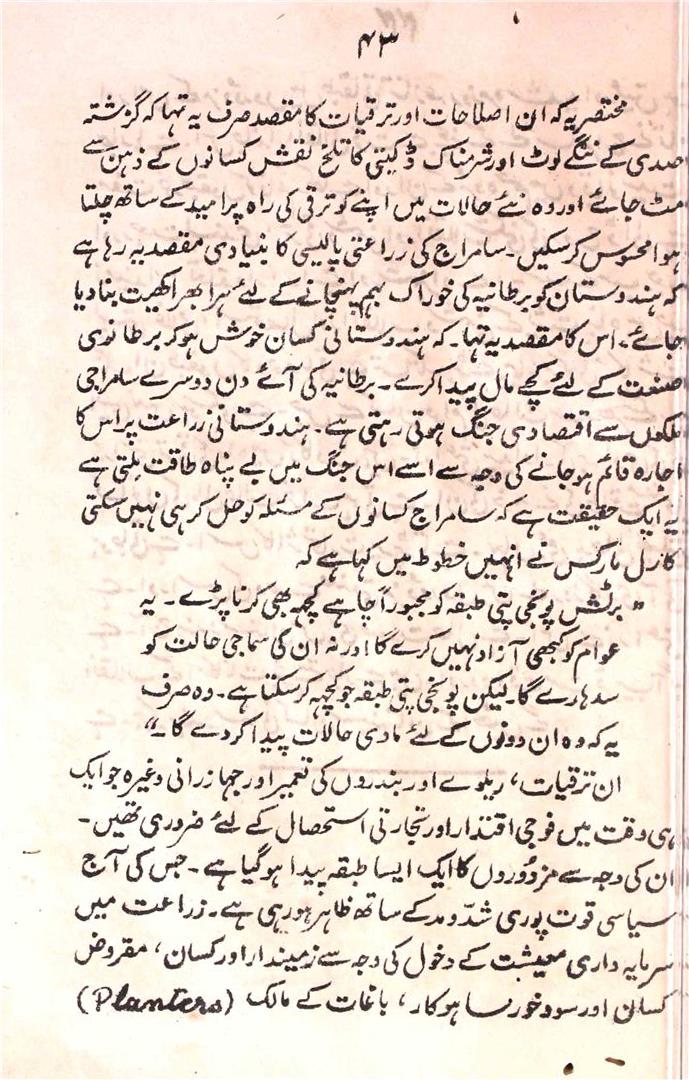 ۴۳
مختصر یہ کہ ان اصلاحات اور ترقیات کا مقصد صرف یہ تہا کہ گزشتہ
صدی کے ننگے لوٹ اور شرمناک ڈکیتی کا تلخ نقش کسانوں کے ذہن سے
مٹ جائے اور وہ نئے حالات میں اپنے کو ترقی کی راہ پر امید کے ساتھ چلتا
ہوا محسوس کر سکیں۔ سامراج کی زراعتی پالیسی کا بنیادی مقصد یہ رہا ہے
کہ ہندوستان کو برطانیہ کی خوراک بہم پہنچانے کے لئے ہرا بھرا کھیت بنا دیا
جائے۔ اس کا مقصد یہ تہا۔ کہ ہندوستانی کسان خوش ہو کر برطانوی
صنعت کے لئے کچے مال پیدا کرے۔ برطانیہ کی آئے دن دوسرے سامراجی
ملکوں سے اقتصادی جنگ ہوتی رہتی ہے۔ ہندوستانی زراعت پر اس کا
اجارہ قائم ہو جانے کی وجہ سے اسے اس جنگ میں بے پناہ طاقت ملتی ہے
یہ ایک حقیقت ہے کہ سامراج کسانوں کے مسئلہ کو حل کر ہی نہیں سکتی
کارل مارکس نے انہیں خطوط میں کہا ہے کہ
"برٹش پونجی پتی طبقہ کو مجبوراً چاہے کچھ بھی کرنا پڑے۔ یہ
عوام کو کبھی آزاد نہیں کرے گا اور نہ ان کی سماجی حالت کو
سدہارے گا۔ لیکن پونجی پتی طبقہ جو کچھ کر سکتا ہے۔ وہ صرف
یہ کہ وہ ان دونوں کے لئے مادی حالات پیدا کر دے گا۔"
ان ترقیات، ریلوے اور بندروں کی تعمیر اور جہاز رانی وغیرہ جو ایک
ہی وقت میں فوجی اقتدار اور تجارتی استحصال کے لئے ضروری تھیں۔
ان کی وجہ سے مزدوروں کا ایک ایسا طبقہ پیدا ہو گیا ہے۔ جس کی آج
سیاسی قوت پوری شدّ و مد کے ساتھ ظاہر ہو رہی ہے۔ زراعت میں
سرمایہ داری معیشت کے دخول کی وجہ سے زمیندار اور کسان، مقروض
کسان اور سود خور ساہوکار، باغات کے مالک (Planters)